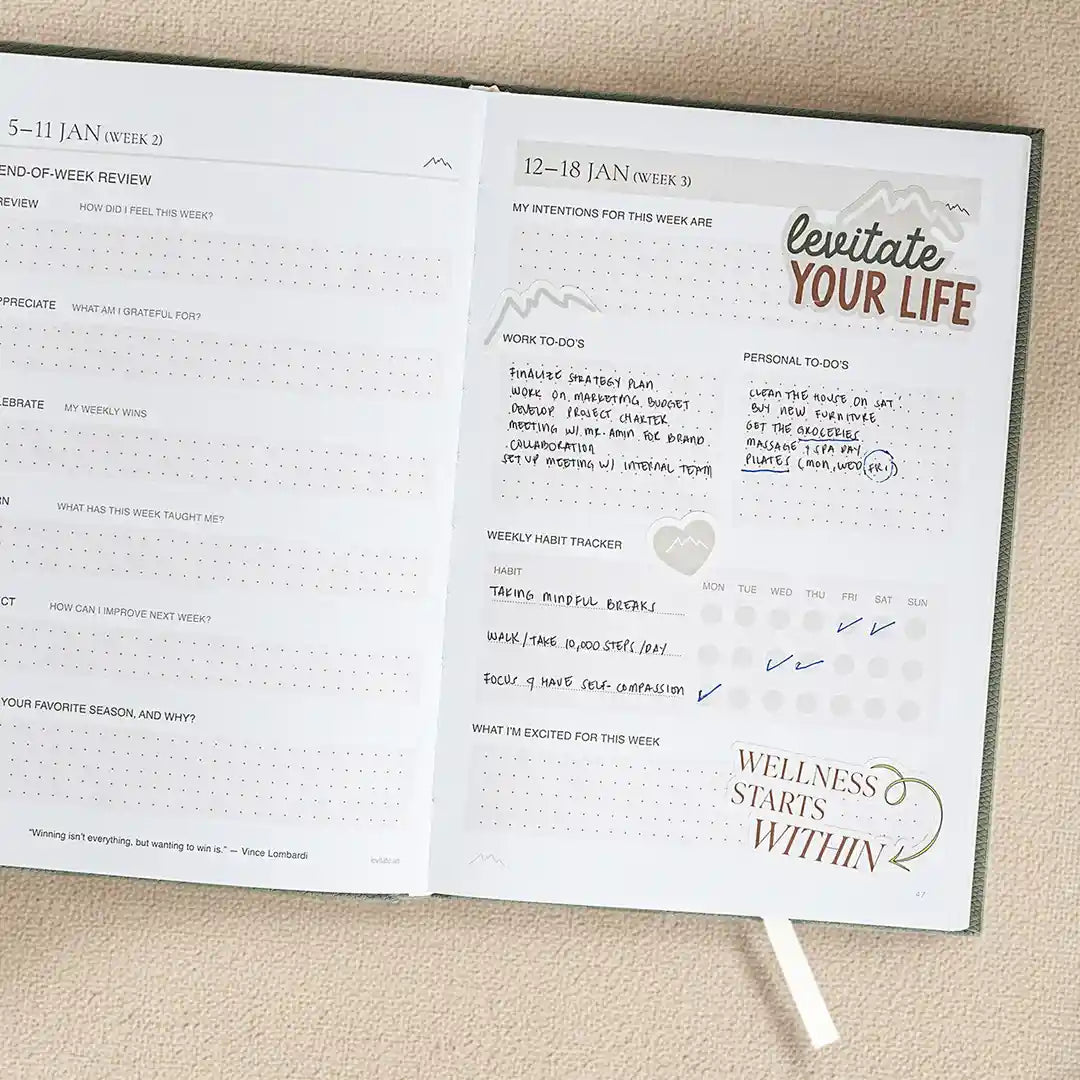 5–11 JAN (WEEK 2)
END-OF-WEEK REVIEW
REVIEW HOW DID I FEEL THIS WEEK?
WHAT AM I GRATEFUL FOR?
MY WEEKLY WINS
WHAT HAS THIS WEEK TAUGHT ME?
HOW CAN I IMPROVE NEXT WEEK?
YOUR FAVORITE SEASON, AND WHY?
“Winning isn't everything, but wanting to win is.” — Vince Lombardi
12–18 JAN (WEEK 3)
MY INTENTIONS FOR THIS WEEK ARE
levitate
YOUR LIFE
WORK TO-DO'S
FINALIZE STRATEGY PLAN
WORK ON MARKETING BUDGET
DEVELOP PROJECT CHARTER
MEETING W/ MR. AMIN FOR BRAND
COLLABORATION
SET UP MEETING W/ INTERNAL TEAM
PERSONAL TO-DO'S
CLEAN THE HOUSE ON SAT
BUY NEW FURNITURE
GET THE GROCERIES
MASSAGE & SPA DAY
PILATES (MON, WED, FRI)
WEEKLY HABIT TRACKER
HABIT MON TUE WED THU FRI SAT SUN
TAKING MINDFUL BREAKS
WALK/TAKE 10,000 STEPS/DAY
FOCUS & HAVE SELF-COMPASSION
WHAT I'M EXCITED FOR THIS WEEK
WELLNESS
STARTS
WITHIN
47